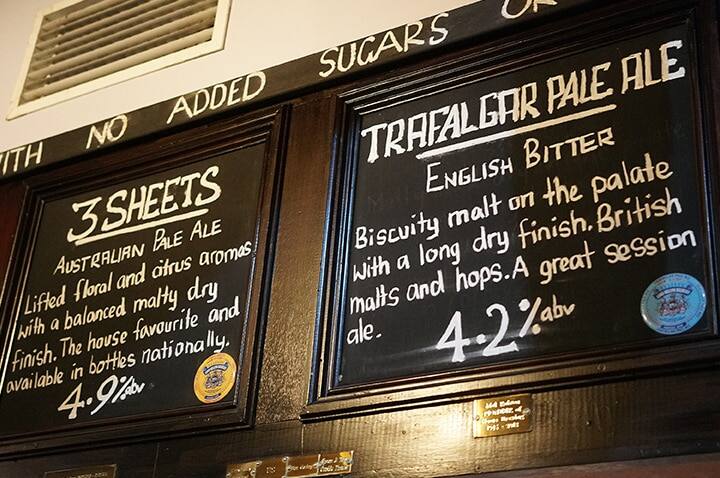 WITH NO ADDED SUGARS OR
3 SHEETS
AUSTRALIAN PALE ALE
Lifted floral and citrus aromas
with a balanced malty dry
finish. The house favourite and
available in bottles nationally.
4.9% abv
TRAFALGAR PALE ALE
ENGLISH BITTER
Biscuity malt on the palate
with a long dry finish. British
malts and hops. A great session
ale.
4.2% abv